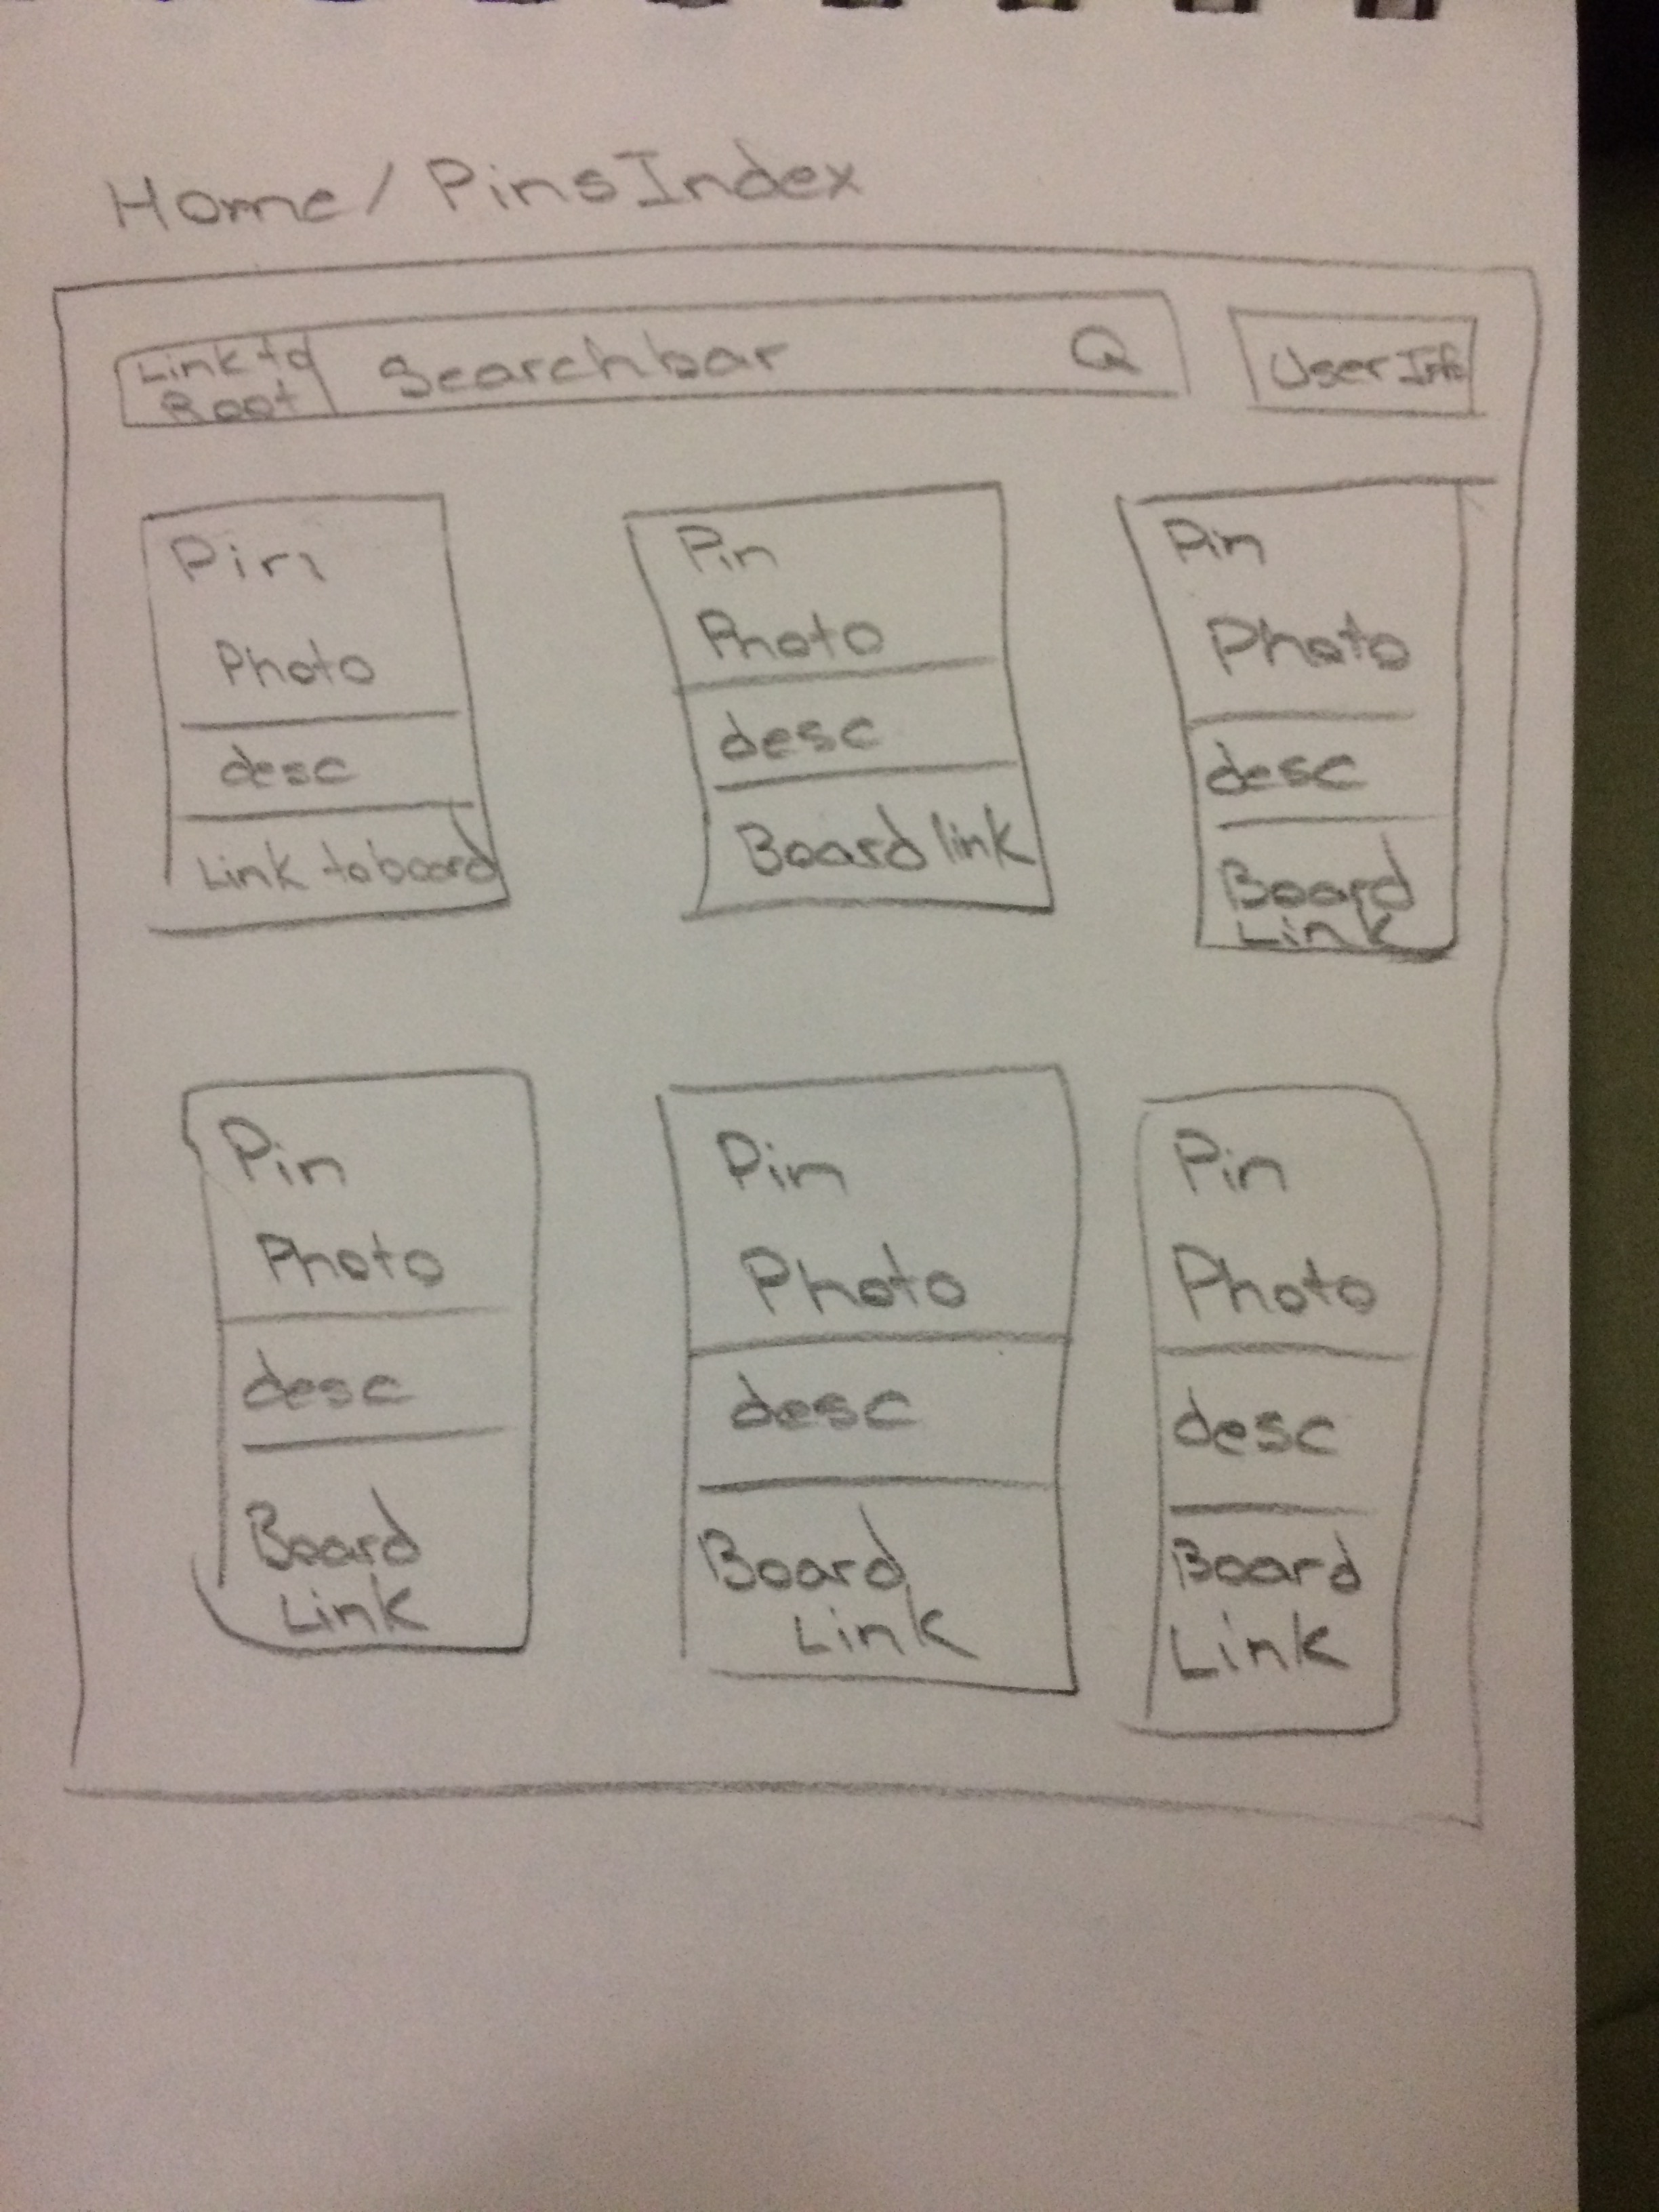 Home / PinsIndex
Link to
Root
Searchbar
User Info
Pin
Photo
desc
Link to board
Pin
Photo
desc
Board link
Pin
Photo
desc
Board
Link
Pin
Photo
desc
Board
Link
Pin
Photo
desc
Board
Link
Pin
Photo
desc
Board
Link